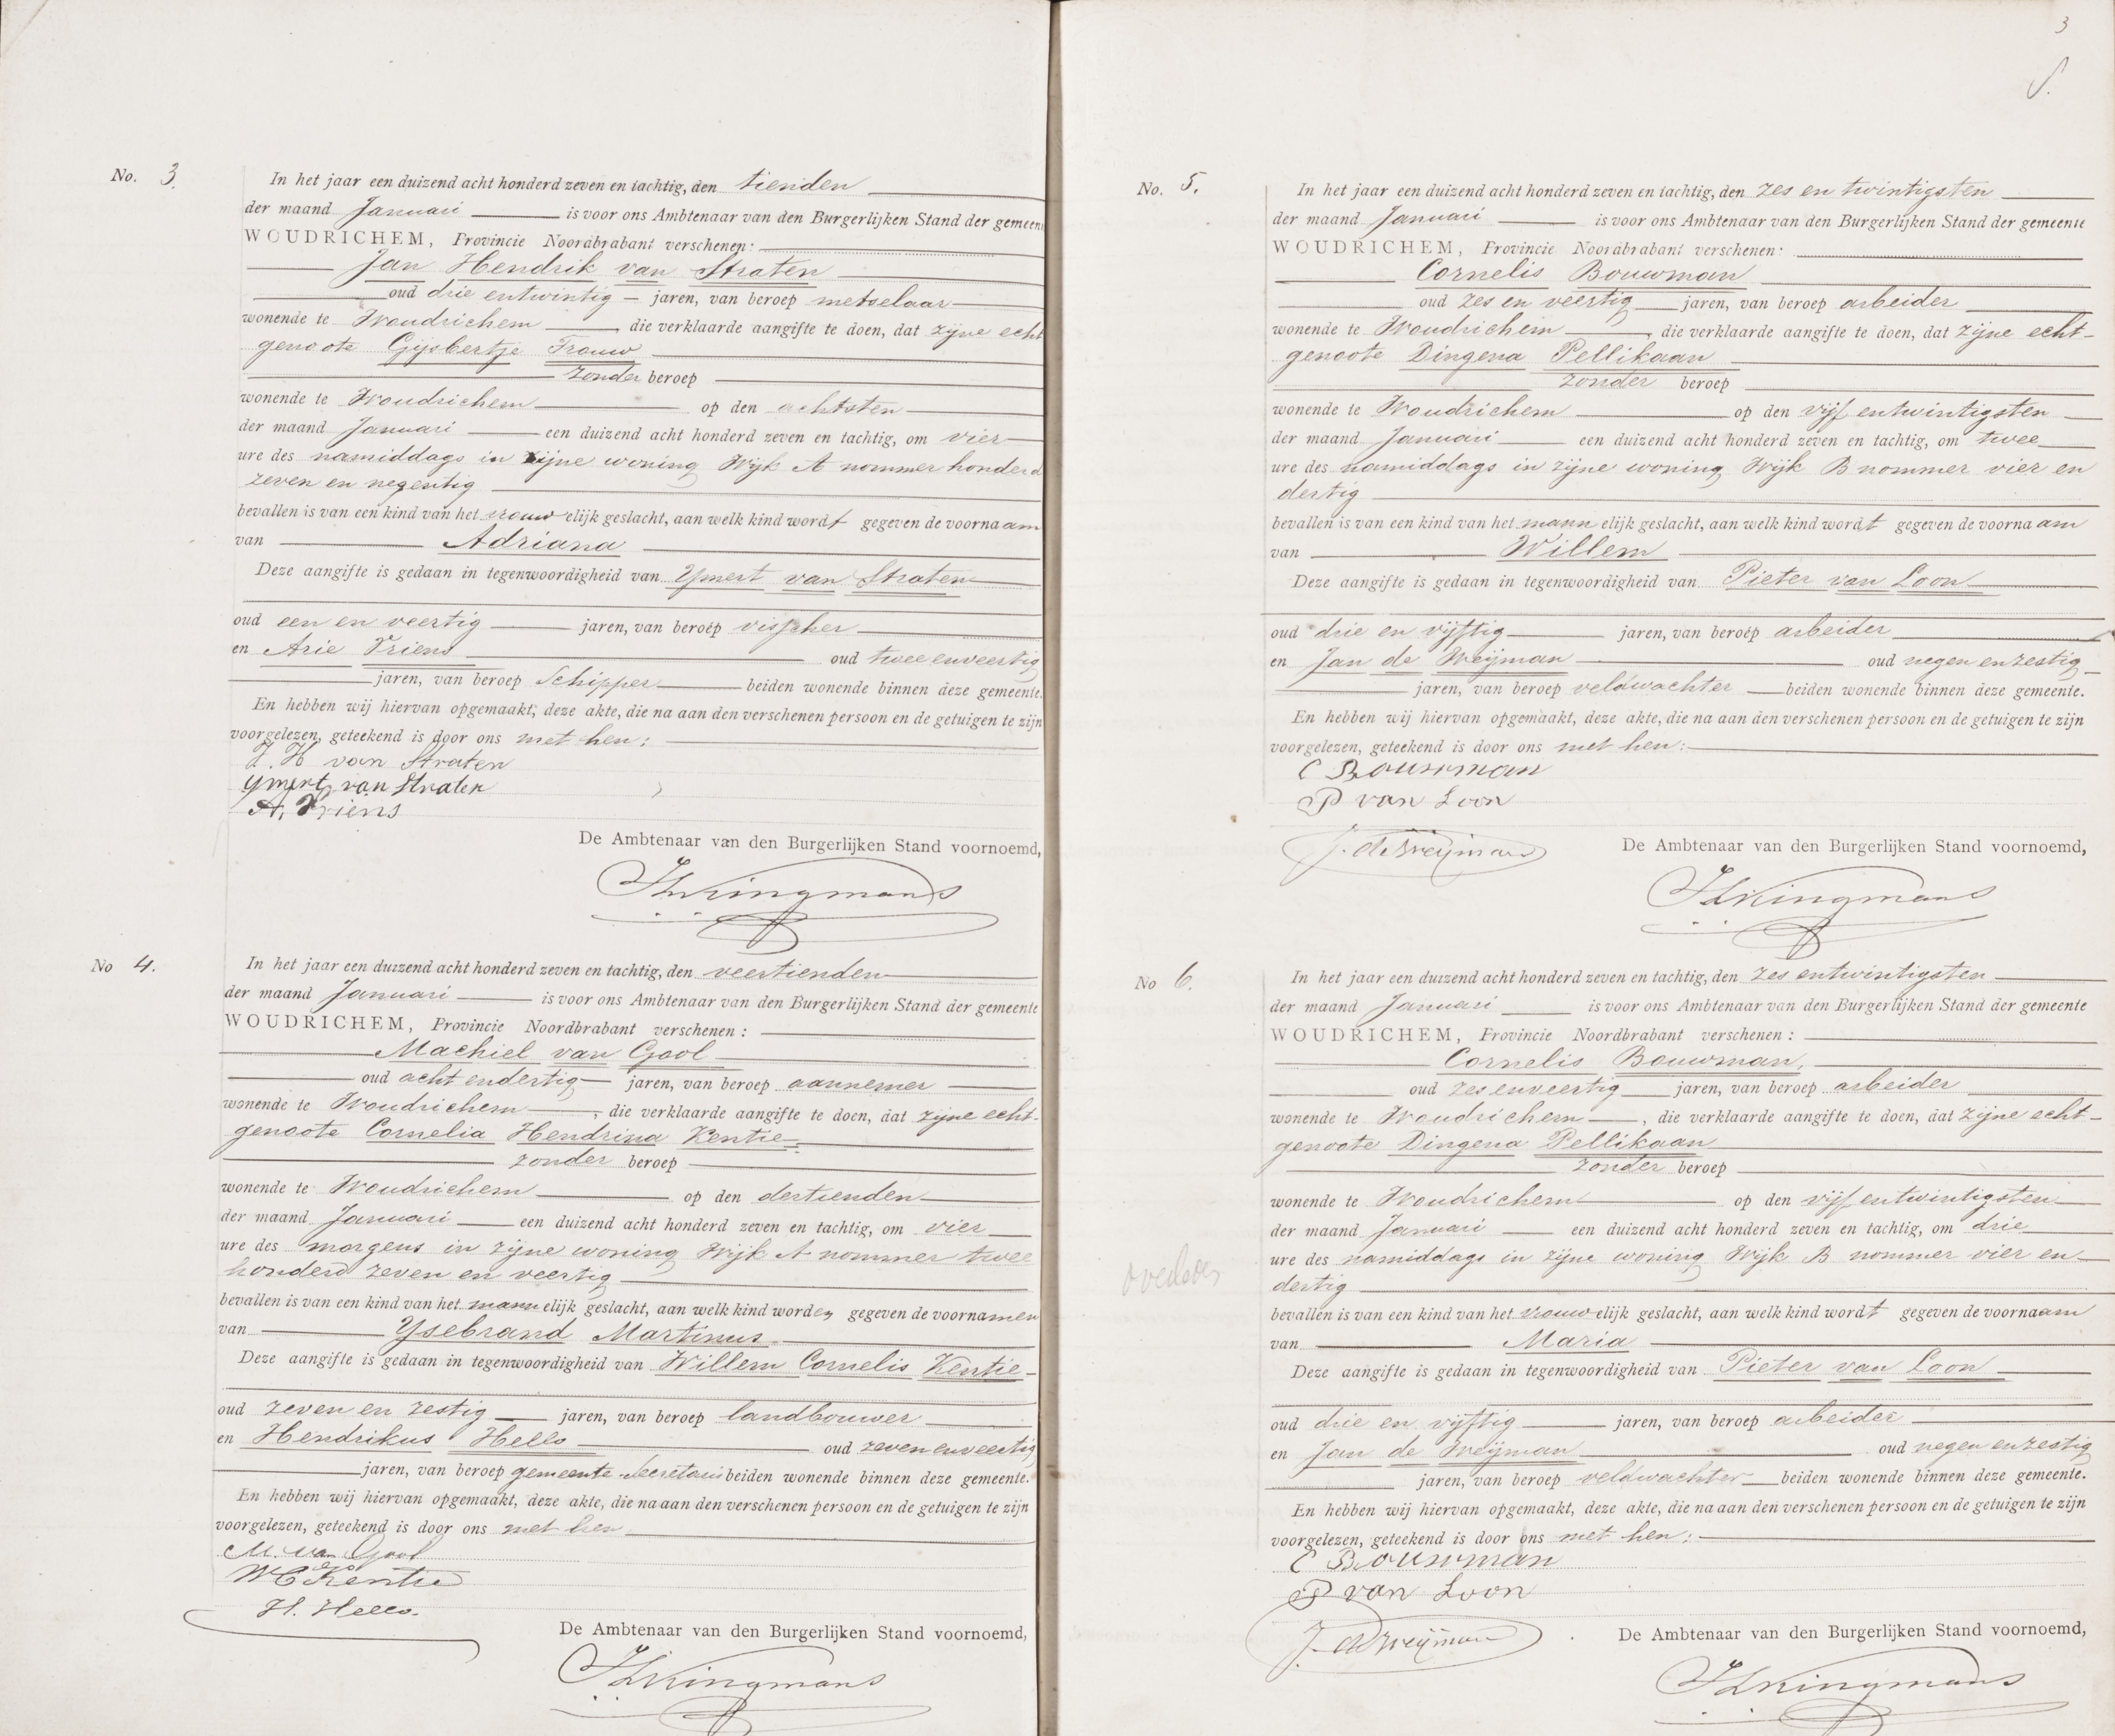 No. 3.
In het jaar een duizend acht honderd zeven en tachtig, den tienden
der maand Januari is voor ons Ambtenaar van den Burgerlijken Stand der gemeen
WOUDRICHEM, Provincie Noordbrabant verschenen:
Jan Hendrik van Straten
oud drie entwintig jaren, van beroep metselaar
wonende te Woudrichem, die verklaarde aangifte te doen, dat zijne echt
genoote Gijsbertje Trouw
zonder beroep
wonende te Woudrichem op den achtsten
der maand Januari een duizend acht honderd zeven en tachtig, om vier
ure des namiddags in zijne woning Wijk A nommer honderd
zeven en negentig
bevallen is van een kind van het vrouwelijk geslacht, aan welk kind wordt gegeven de voornaam
van Adriana
Deze aangifte is gedaan in tegenwoordigheid van Ymert van Straten
oud een en veertig jaren, van beroep visscher
en Arie Vriens oud twee enveertig
jaren, van beroep Schipper beiden wonende binnen deze gemeente.
En hebben wij hiervan opgemaakt, deze akte, die na aan den verschenen persoon en de getuigen te zijn
voorgelezen, geteekend is door ons met hen:
J. H van Straten
Ymert van Straten
A. Vriens
De Ambtenaar van den Burgerlijken Stand voornoemd,
Kingmans
No 4.
In het jaar een duizend acht honderd zeven en tachtig, den veertienden
der maand Januari is voor ons Ambtenaar van den Burgerlijken Stand der gemeente
WOUDRICHEM, Provincie Noordbrabant verschenen:
Machiel van Gool
oud acht endertig jaren, van beroep aannemer
wonende te Woudrichem, die verklaarde aangifte te doen, dat zijne echt-
genoote Cornelia Hendrina Kentie
zonder beroep
wonende te Woudrichem op den dertienden
der maand Januari een duizend acht honderd zeven en tachtig, om vier
ure des morgens in zijne woning Wijk A nommer twee
honderd zeven en veertig
bevallen is van een kind van het mannelijk geslacht, aan welk kind worden gegeven de voornamen
van Ysebrand Martinus
Deze aangifte is gedaan in tegenwoordigheid van Willem Cornelis Kentie
oud zeven en zestig jaren, van beroep landbouwer
en Hendrikus Hello oud zeven enveertig
jaren, van beroep gemeente Secretaris beiden wonende binnen deze gemeente.
En hebben wij hiervan opgemaakt, deze akte, die na aan den verschenen persoon en de getuigen te zijn
voorgelezen, geteekend is door ons met hen
M. van Gool
W C Kentie
H. Hello.
De Ambtenaar van den Burgerlijken Stand voornoemd,
Kingmans
3
No. 5.
In het jaar een duizend acht honderd zeven en tachtig, den zes en twintigsten
der maand Januari is voor ons Ambtenaar van den Burgerlijken Stand der gemeente
WOUDRICHEM, Provincie Noordbrabant verschenen:
Cornelis Bouwman
oud zes en veertig jaren, van beroep arbeider
wonende te Woudrichem, die verklaarde aangifte te doen, dat zijne echt-
genoote Dingena Pellikaan
zonder beroep
wonende te Woudrichem op den vijf entwintigsten
der maand Januari een duizend acht honderd zeven en tachtig, om twee
ure des namiddags in zijne woning Wijk B nommer vier en
dertig
bevallen is van een kind van het mannelijk geslacht, aan welk kind wordt gegeven de voornaam
van Willem
Deze aangifte is gedaan in tegenwoordigheid van Pieter van Loon
oud drie en vijftig jaren, van beroep arbeider
en Jan de Weijman oud negen enzestig
jaren, van beroep veldwachter beiden wonende binnen deze gemeente.
En hebben wij hiervan opgemaakt, deze akte, die na aan den verschenen persoon en de getuigen te zijn
voorgelezen, geteekend is door ons met hen:
C Bouwman
P van Loon
J. de Weijman
De Ambtenaar van den Burgerlijken Stand voornoemd,
Kingmans
No 6.
In het jaar een duizend acht honderd zeven en tachtig, den zes entwintigsten
der maand Januari is voor ons Ambtenaar van den Burgerlijken Stand der gemeente
WOUDRICHEM, Provincie Noordbrabant verschenen:
Cornelis Bouwman,
oud zes enveertig jaren, van beroep arbeider
wonende te Woudrichem, die verklaarde aangifte te doen, dat zijne echt-
genoote Dingena Pellikaan
zonder beroep
wonende te Woudrichem op den vijf entwintigsten
der maand Januari een duizend acht honderd zeven en tachtig, om drie
ure des namiddags in zijne woning Wijk B nommer vier en
dertig
overleden
bevallen is van een kind van het vrouwelijk geslacht, aan welk kind wordt gegeven de voornaam
van Maria
Deze aangifte is gedaan in tegenwoordigheid van Pieter van Loon
oud drie en vijftig jaren, van beroep arbeider
en Jan de Weijman oud negen enzestig
jaren, van beroep veldwachter beiden wonende binnen deze gemeente.
En hebben wij hiervan opgemaakt, deze akte, die na aan den verschenen persoon en de getuigen te zijn
voorgelezen, geteekend is door ons met hen:
C Bouwman
P van Loon
J. de Weijman
De Ambtenaar van den Burgerlijken Stand voornoemd,
Kingmans